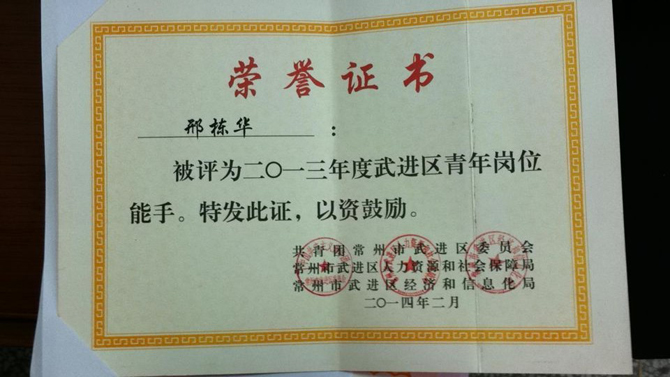 荣誉证书
邢栋华：
被评为二〇一三年度武进区青年岗位
能手。特发此证，以资鼓励。
共青团常州市武进区委员会
常州市武进区人力资源和社会保障局
常州市武进区经济和信息化局
二〇一四年二月